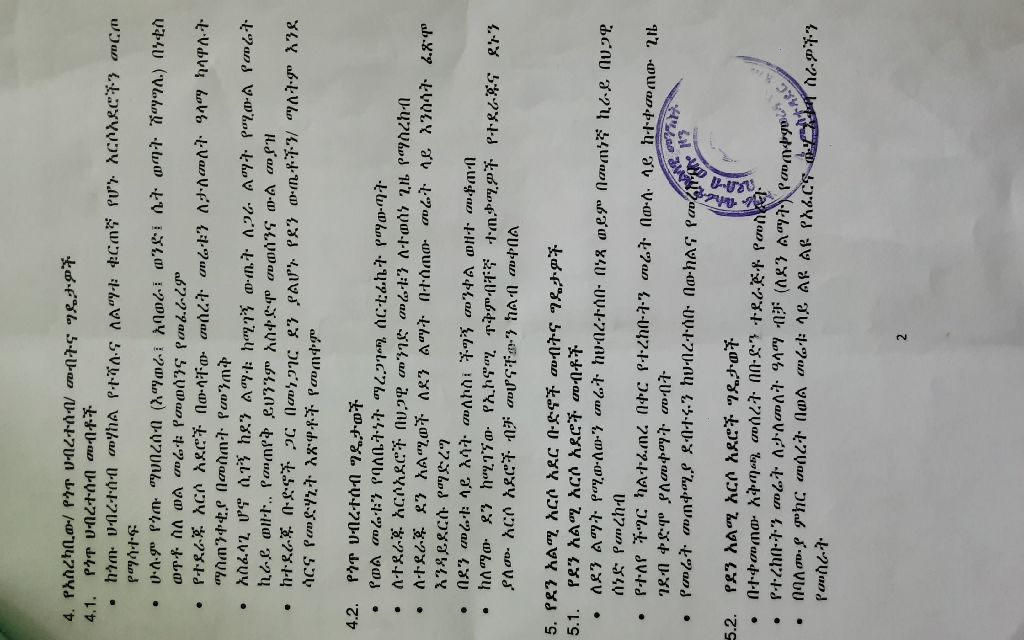 4. የአስረካቢው/ የጎጥ ህብረተሰብ/ መብትና ግዴታዎች
4.1. የጎጥ ህብረተሰብ መብቶች
• ከጎጡ ህብረተሰብ መካከል የተሻሉና ለልማቱ ቁርጠኛ የሆኑ አርሶአደሮችን መርጦ
የማሳተፍ
• ሁሉም የጎጡ ማህበረሰብ (እማወራ፤ አባወራ፤ ወንድ፤ ሴት ወጣት ሽማግሌ) በነቂስ
ወጥቶ ስለ ወል መሬቱ የመወሰንና የመፈራረም
• የተደራጁ አርሶ አደሮች በውላቸው መሰረት መሬቱን ለታለመለት ዓላማ ካላዋሉት
ማስጠንቀቂያ በመስጠት የመንጠቅ
• አስፈላጊ ሆኖ ሲገኝ ከደን ልማቱ ከሚገኝ ውጤት ለጋራ ልማት የሚውል የመሬት
ኪራይ ወዘተ.. የመጠየቅ ይህንንም አስቀድሞ መወሰንና ውል መያዝ
• ከተደራጁ ቡድኖች ጋር በመነጋገር ደን ያልሆኑ የደን ውጤቶችን/ ማለትም እንደ
ሳርና የመድሃኒት እጽዋቶች የመጠቀም
4.2. የጎጥ ህብረተሰብ ግዴታወች
• የወል መሬቱን የባለቤትነት ማረጋገጫ ሰርቲፊኬት የማውጣት
• ለተደራጁ አርሶአደሮች በህጋዊ መንገድ መሬቱን ለተወሰነ ጊዜ የማስረከብ
• ለተደራጁ ደን አልሚወች ለደን ልማት በተሰጠው መሬት ላይ እንሰሳት ፈጽሞ
እንዳይደርሱ የማድረግ
• በደን መሬቱ ላይ እሳት መለኮስ፤ ችግኝ መንቀል ወዘተ መቆጠብ
• ከለማው ደን ከሚገኘው የኢኮኖሚ ጥቅምብቸኛ ተጠቃሚዎች የተደራጁና ደኑን
ያለሙ አርሶ አደሮች ብቻ መሆናቸውን ከልብ መቀበል
5. የደን አልሚ አርሶ አደር ቡድኖች መብትና ግዴታዎች
5.1. የደን አልሚ አርሶ አደሮች መብቶች
• ለደን ልማት የሚውለውን መሬት ከህብረተሰቡ በነጻ ወይም በመጠነኛ ኪራይ በህጋዊ
ሰነድ የመረከብ
• የተለየ ችግር ካልተፈጠረ በቀር የተረከቡትን መሬት በውሉ ላይ ከተቀመጠው ጊዜ
ገደብ ቀድሞ ያለመቀማት መብት
• የመሬት መጠቀሚያ ደብተሩን ከህብረተሰቡ በውክልና
5.2. የደን አልሚ አርሶ አደሮች ግዴታወች
• በተቀመጠው አቅጣጫ መሰረት በቡድን ተደራጅቶ
• የተረከቡትን መሬት ለታለመለት ዓላማ ብቻ (ለደን ልማት)
• በባለሙያ ምክር መሰረት በወል መሬቱ ላይ ልዩ ልዩ የአፈርና ስራዎችን
የመስራት
2